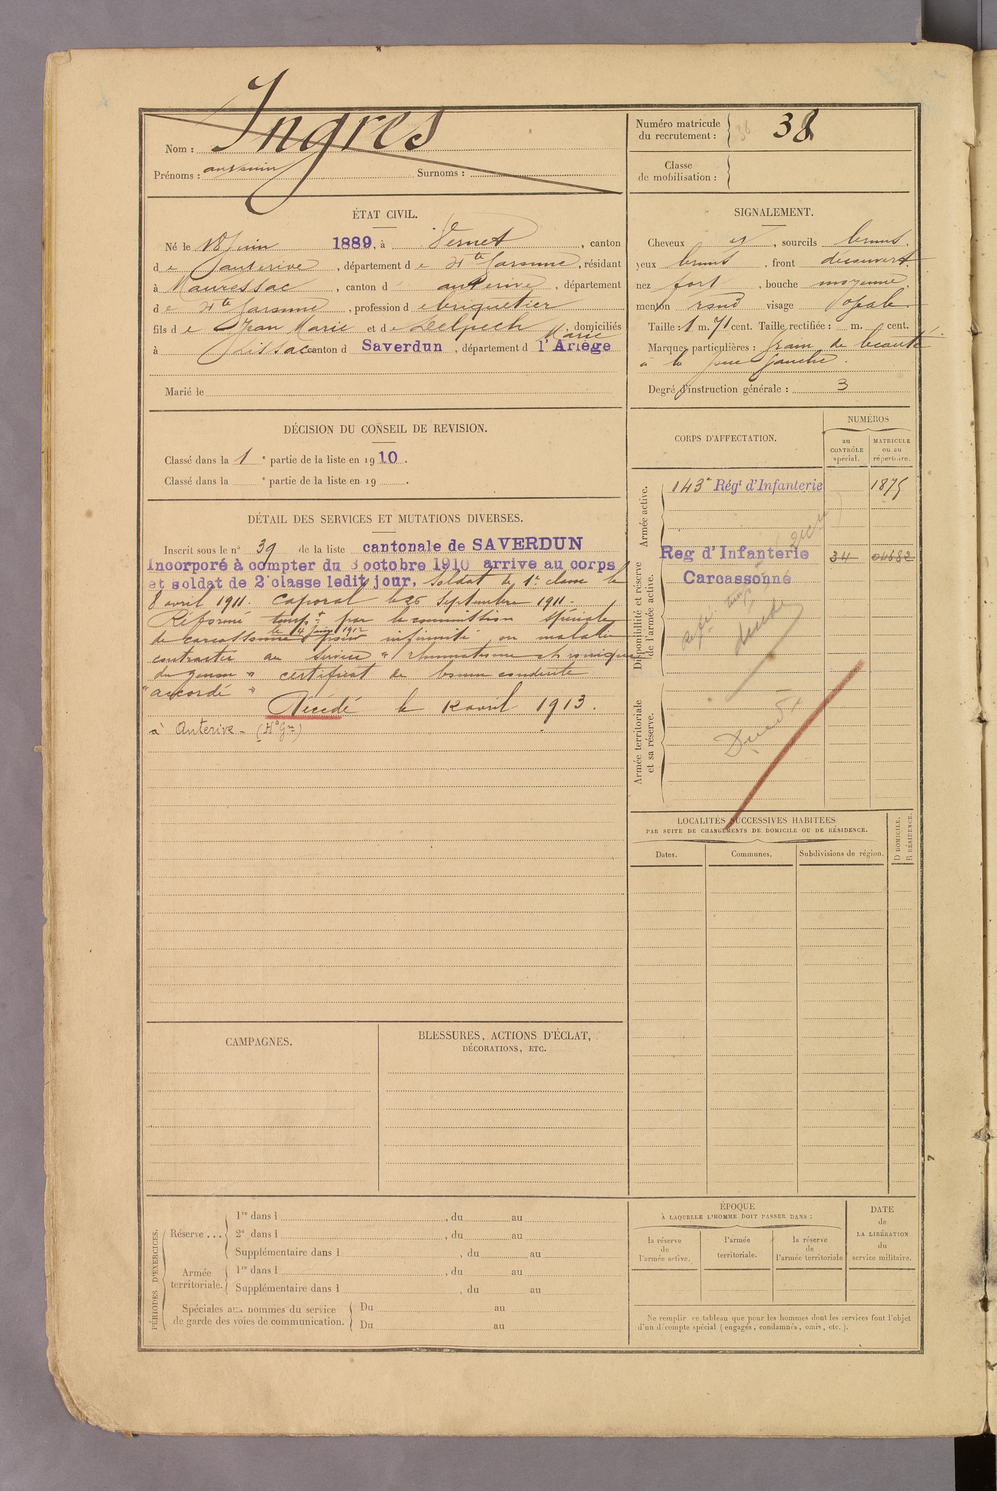 Nom : Ingres
Prénoms : Surnoms :
Numéro matricule du recrutement : 38
Classe de mobilisation :
ÉTAT CIVIL.
Né le 18 Juin 1889, à Vernet, canton
d e auterive, département d e Hte Garonne, résidant
à Mauressac, canton d auterive, département
d e Hte Garonne, profession d e briquetier
fils d e Jean Marie et d e Delpech Marie, domiciliés
à Jussac canton d Saverdun, département d l'Ariège
Marié le
SIGNALEMENT.
Cheveux et, sourcils bruns.
yeux bruns, front découvert
nez fort, bouche moyenne
menton rond visage ovale
Taille : 1 m. 71 cent. Taille rectifiée : m. cent.
Marques particulières : grain de beauté
à la joue gauche.
Degré d'instruction générale : 3
DÉCISION DU CONSEIL DE REVISION.
Classé dans la 1e partie de la liste en 1910.
Classé dans la e partie de la liste en 19 .
DÉTAIL DES SERVICES ET MUTATIONS DIVERSES.
Inscrit sous le n° 39 de la liste cantonale de SAVERDUN
Incorporé à compter du 3 octobre 1910 arrive au corps
et soldat de 2e classe ledit jour. Soldat de 1e classe le
8 avril 1911. Caporal le 26 Septembre 1911.
Réformé temp° par la commission spéciale
de carcassonne le 14 1912 pour infirmité ou maladie
contractée au service "rhumatisme chronique
du genou" certificat de bonne conduite
"accordé"
Décédé le 12 avril 1913.
à Auterive - (Hte Gne)
CORPS D'AFFECTATION.
NUMÉROS
au CONTRÔLE spécial.
MATRICULE ou au répertoire.
Armée active.
143e Régt d'Infanterie 1875
Disponibilité et réserve de l'armée active.
Reg d'Infanterie 34 04682
Carcassonne
Armée territoriale et sa réserve.
LOCALITÉS SUCCESSIVES HABITÉES
PAR SUITE DE CHANGEMENTS DE DOMICILE OU DE RÉSIDENCE.
Dates. Communes. Subdivisions de région. D DOMICILE. R RÉSIDENCE.
CAMPAGNES.
BLESSURES, ACTIONS D'ÉCLAT,
DÉCORATIONS, ETC.
PÉRIODES D'EXERCICES.
Réserve ...
1re dans l , du au
2e dans l , du au
Supplémentaire dans l , du au
Armée territoriale.
1re dans l , du au
Supplémentaire dans l , du au
Spéciales aux hommes du service
de garde des voies de communication.
Du au
Du au
ÉPOQUE
À LAQUELLE L'HOMME DOIT PASSER DANS :
la réserve de l'armée active.
l'armée territoriale.
la réserve de l'armée territoriale
DATE de LA LIBÉRATION du service militaire.
Ne remplir ce tableau que pour les hommes dont les services font l'objet
d'un décompte spécial (engagés, condamnés, omis, etc.).